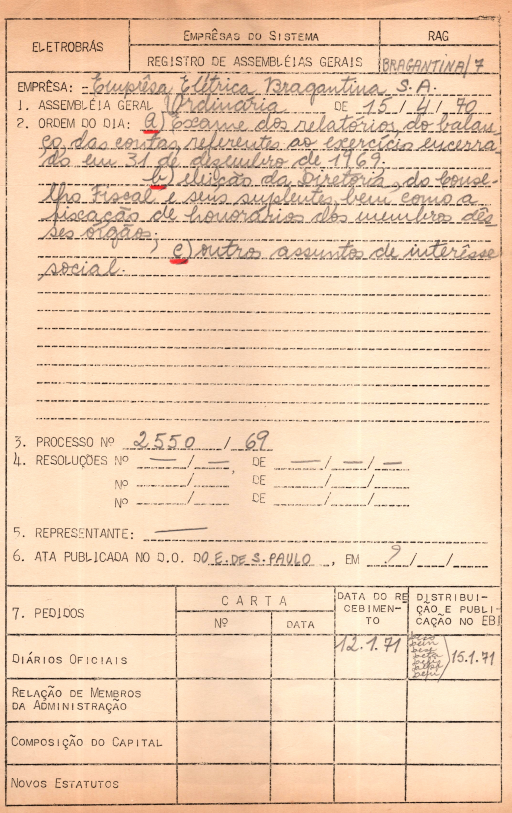 ELETROBRÁS
EMPRÊSAS DO SISTEMA
RAG
REGISTRO DE ASSEMBLÉIAS GERAIS
BRAGANTINA/7
EMPRÊSA: - Emprêsa Elétrica Bragantina S.A.
1. ASSEMBLÉIA GERAL Ordinária DE 15 / 4 / 70
2. ORDEM DO DIA: a) Exame dos relatórios, do balan-
ço das contas referentes ao exercício encerra-
do em 31 de dezembro de 1969.
b) eleição da Diretoria, do Conse-
lho Fiscal e seus suplentes, bem como a
fixação de honorários dos membros dês-
ses órgãos;
c) outros assuntos de interêsse
social.
3. PROCESSO Nº 2550 / 69
4. RESOLUÇÕES Nº — / — , DE — / — / —
Nº / DE / /
Nº / DE / /
5. REPRESENTANTE: —
6. ATA PUBLICADA NO D.O. DO E. DE S. PAULO , EM ? / /
7. PEDIDOS
CARTA
Nº
DATA
DATA DO RE
CEBIMEN-
TO
DISTRIBUI-
ÇÃO E PUBLI-
CAÇÃO NO EBI
DIÁRIOS OFICIAIS
12.1.71
15.1.71
RELAÇÃO DE MEMBROS
DA ADMINISTRAÇÃO
COMPOSIÇÃO DO CAPITAL
NOVOS ESTATUTOS